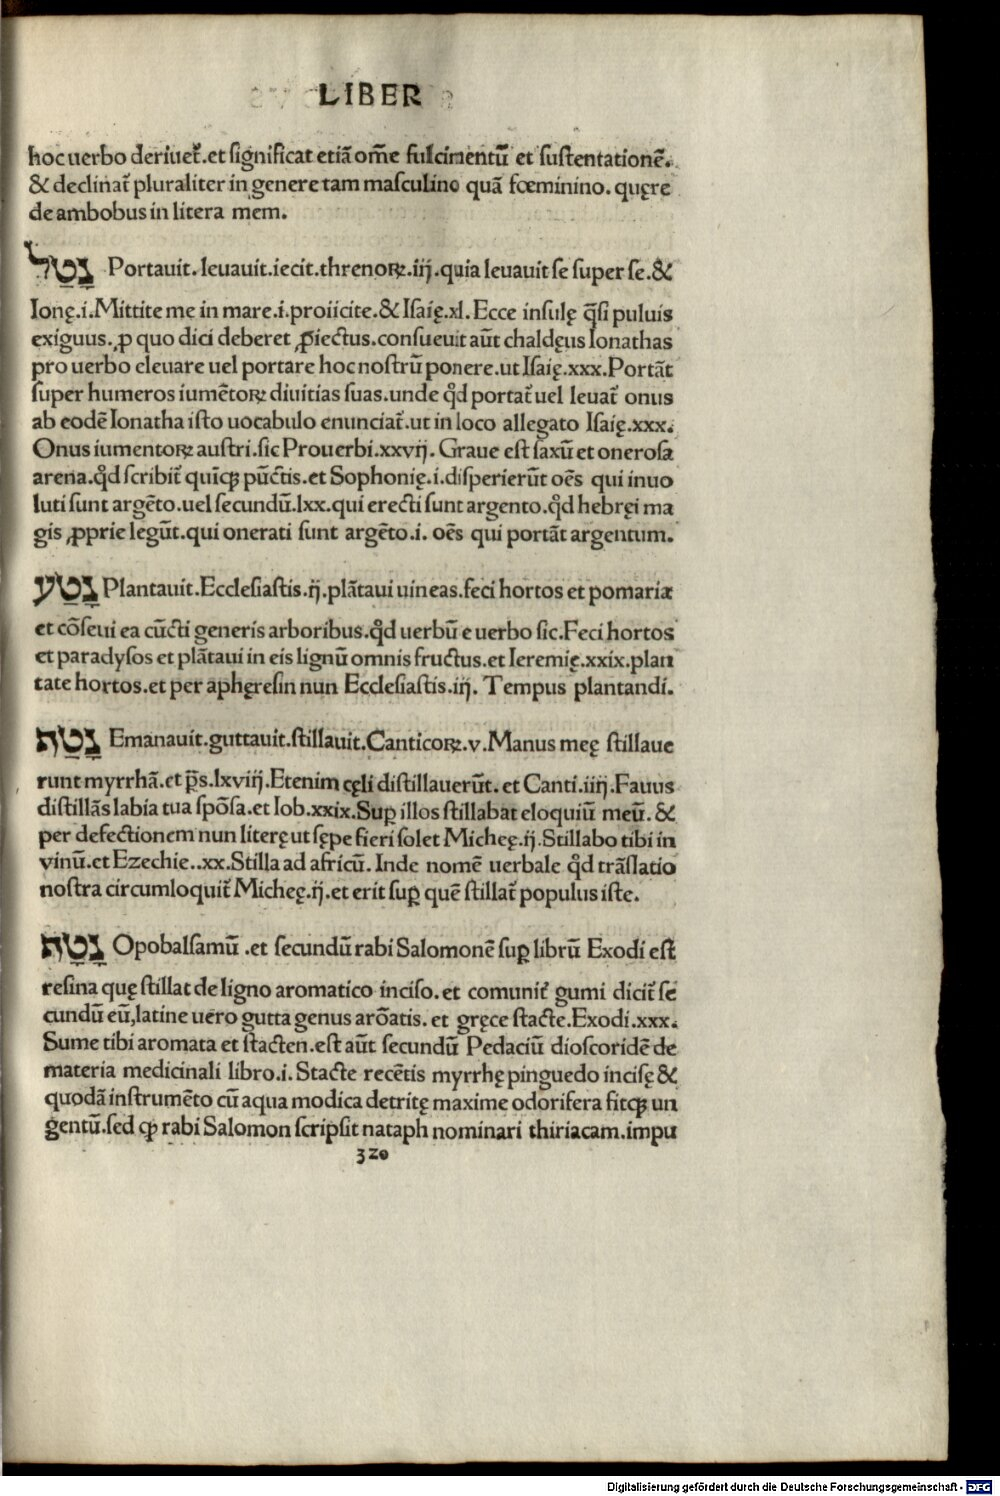 LIBER
hoc uerbo deriuet᷑.et significat etiā om̄e fulcimentū et sustentationē.
& declinat᷑ pluraliter in genere tam masculino quā fœminino. quęre
de ambobus in litera mem.
נָטַל Portauit.leuauit.iecit.threnoꝝ.iij.quia leuauit se super se.&
Ionę.i.Mittite me in mare.i.proiicite.& Isaię.xl.Ecce insulę q̄si puluis
exiguus.ꝓ quo dici deberet ꝓiectus.consueuit aūt chaldęus Ionathas
pro uerbo eleuare uel portare hoc nostrū ponere.ut Isaię.xxx.Portāt
super humeros iumētoꝝ diuitias suas.unde qd̄ portat᷑ uel leuat᷑ onus
ab eodē Ionatha isto uocabulo enunciat᷑.ut in loco allegato Isaię.xxx.
Onus iumentoꝝ austri.sic Prouerbi.xxvij. Graue est saxū et onerosa
arena.qd̄ scribit᷑ quīcꝫ pūctis.et Sophonię.i.disperierūt oēs qui inuo
luti sunt argēto.uel secundū.lxx.qui erecti sunt argento.qd̄ hebręi ma
gis ꝓprie legūt.qui onerati sunt argēto.i. oēs qui portāt argentum.
נָטַע Plantauit.Ecclesiastis.ij.plātaui uineas.feci hortos et pomaria
et cōseui ea cūcti generis arboribus.qd̄ uerbū e uerbo sic.Feci hortos
et paradysos et plātaui in eis lignū omnis fructus.et Ieremię.xxix.plan
tate hortos.et per aphęresin nun Ecclesiastis.iij. Tempus plantandi.
נָטַף Emanauit.guttauit.stillauit.Canticoꝝ.v.Manus meę stillaue
runt myrrhā.et p̄s.lxviij.Etenim cęli distillauerūt. et Canti.iiij.Fauus
distillās labia tua spōsa.et Iob.xxix.Suꝑ illos stillabat eloquiū meū. &
per defectionem nun literę ut sępe fieri solet Micheę.ij.Stillabo tibi in
vinū.et Ezechie..xx.Stilla ad africū. Inde nomē uerbale qd̄ trāslatio
nostra circumloquit᷑ Micheę.ij.et erit suꝑ quē stillat᷑ populus iste.
נָטָף Opobalsamū .et secundū rabi Salomonē suꝑ librū Exodi est
resina quę stillat de ligno aromatico inciso.et comunit᷑ gumi dicit᷑ se
cundū eū,latine uero gutta genus arōatis. et gręce stacte.Exodi.xxx.
Sume tibi aromata et stacten.est aūt secundū Pedaciū dioscoridē de
materia medicinali libro.i.Stacte recētis myrrhę pinguedo incisę &
quodā instrumēto cū aqua modica detritę maxime odorifera fitꝙ un
gentū.sed ꝙ rabi Salomon scripsit nataph nominari thiriacam.impu
320
Digitalisierung gefördert durch die Deutsche Forschungsgemeinschaft - DFG